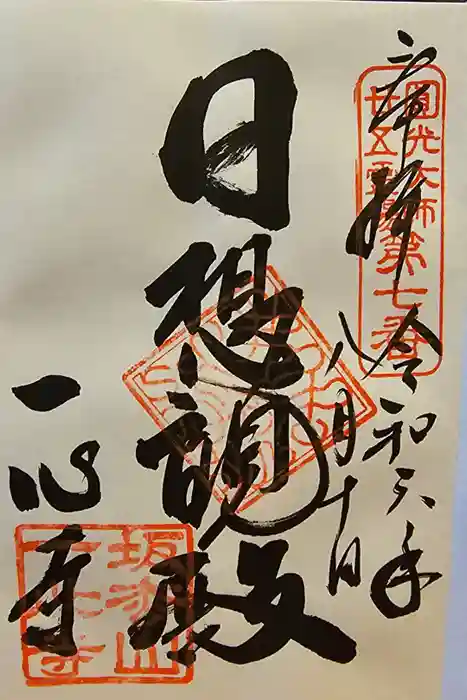 奉拝
圓光大師
廿五靈場第七番
令和六年
八月十日
日想観殿
一心寺
坂松山
一心寺